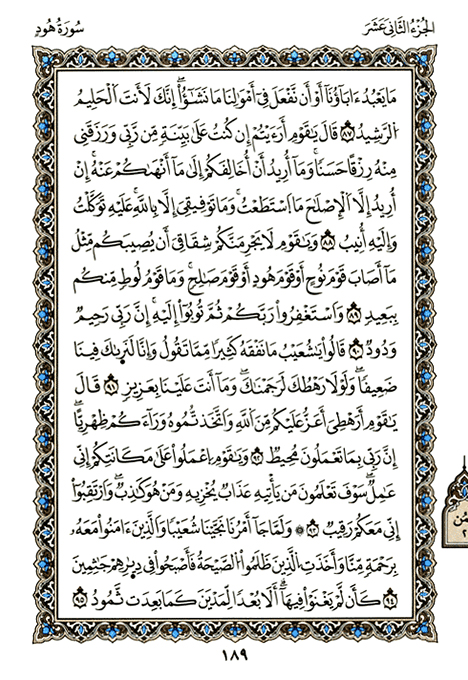 الجُزْءُ الثَّانِي عَشَرَ
سُورَةُ هُودٍ
مَا يَعْبُدُ ءَابَآؤُنَآ أَوْ أَن نَّفْعَلَ فِىٓ أَمْوَٰلِنَا مَا نَشَٰٓؤُا۟ۖ إِنَّكَ لَأَنتَ ٱلْحَلِيمُ
ٱلرَّشِيدُ ٨٧ قَالَ يَٰقَوْمِ أَرَءَيْتُمْ إِن كُنتُ عَلَىٰ بَيِّنَةٍ مِّن رَّبِّى وَرَزَقَنِى
مِنْهُ رِزْقًا حَسَنًاۚ وَمَآ أُرِيدُ أَنْ أُخَالِفَكُمْ إِلَىٰ مَآ أَنْهَىٰكُمْ عَنْهُۚ إِنْ
أُرِيدُ إِلَّا ٱلْإِصْلَٰحَ مَا ٱسْتَطَعْتُۚ وَمَا تَوْفِيقِىٓ إِلَّا بِٱللَّهِۚ عَلَيْهِ تَوَكَّلْتُ
وَإِلَيْهِ أُنِيبُ ٨٨ وَيَٰقَوْمِ لَا يَجْرِمَنَّكُمْ شِقَاقِىٓ أَن يُصِيبَكُم مِّثْلُ
مَآ أَصَابَ قَوْمَ نُوحٍ أَوْ قَوْمَ هُودٍ أَوْ قَوْمَ صَٰلِحٍۚ وَمَا قَوْمُ لُوطٍ مِّنكُم
بِبَعِيدٍ ٨٩ وَٱسْتَغْفِرُوا۟ رَبَّكُمْ ثُمَّ تُوبُوٓا۟ إِلَيْهِۚ إِنَّ رَبِّى رَحِيمٌ
وَدُودٌ ٩٠ قَالُوا۟ يَٰشُعَيْبُ مَا نَفْقَهُ كَثِيرًا مِّمَّا تَقُولُ وَإِنَّا لَنَرَىٰكَ فِينَا
ضَعِيفًاۖ وَلَوْلَا رَهْطُكَ لَرَجَمْنَٰكَۖ وَمَآ أَنتَ عَلَيْنَا بِعَزِيزٍ ٩١ قَالَ
يَٰقَوْمِ أَرَهْطِىٓ أَعَزُّ عَلَيْكُم مِّنَ ٱللَّهِ وَٱتَّخَذْتُمُوهُ وَرَآءَكُمْ ظِهْرِيًّاۖ
إِنَّ رَبِّى بِمَا تَعْمَلُونَ مُحِيطٌ ٩٢ وَيَٰقَوْمِ ٱعْمَلُوا۟ عَلَىٰ مَكَانَتِكُمْ إِنِّى
عَٰمِلٌۖ سَوْفَ تَعْلَمُونَ مَن يَأْتِيهِ عَذَابٌ يُخْزِيهِ وَمَنْ هُوَ كَٰذِبٌۖ وَٱرْتَقِبُوٓا۟
إِنِّى مَعَكُمْ رَقِيبٌ ٩٣ ۞ وَلَمَّا جَآءَ أَمْرُنَا نَجَّيْنَا شُعَيْبًا وَٱلَّذِينَ ءَامَنُوا۟ مَعَهُۥ
بِرَحْمَةٍ مِّنَّا وَأَخَذَتِ ٱلَّذِينَ ظَلَمُوا۟ ٱلصَّيْحَةُ فَأَصْبَحُوا۟ فِى دِيَٰرِهِمْ جَٰثِمِينَ
٩٤ كَأَن لَّمْ يَغْنَوْا۟ فِيهَآۗ أَلَا بُعْدًا لِّمَدْيَنَ كَمَا بَعِدَتْ ثَمُودُ ٩٥
١٨٩